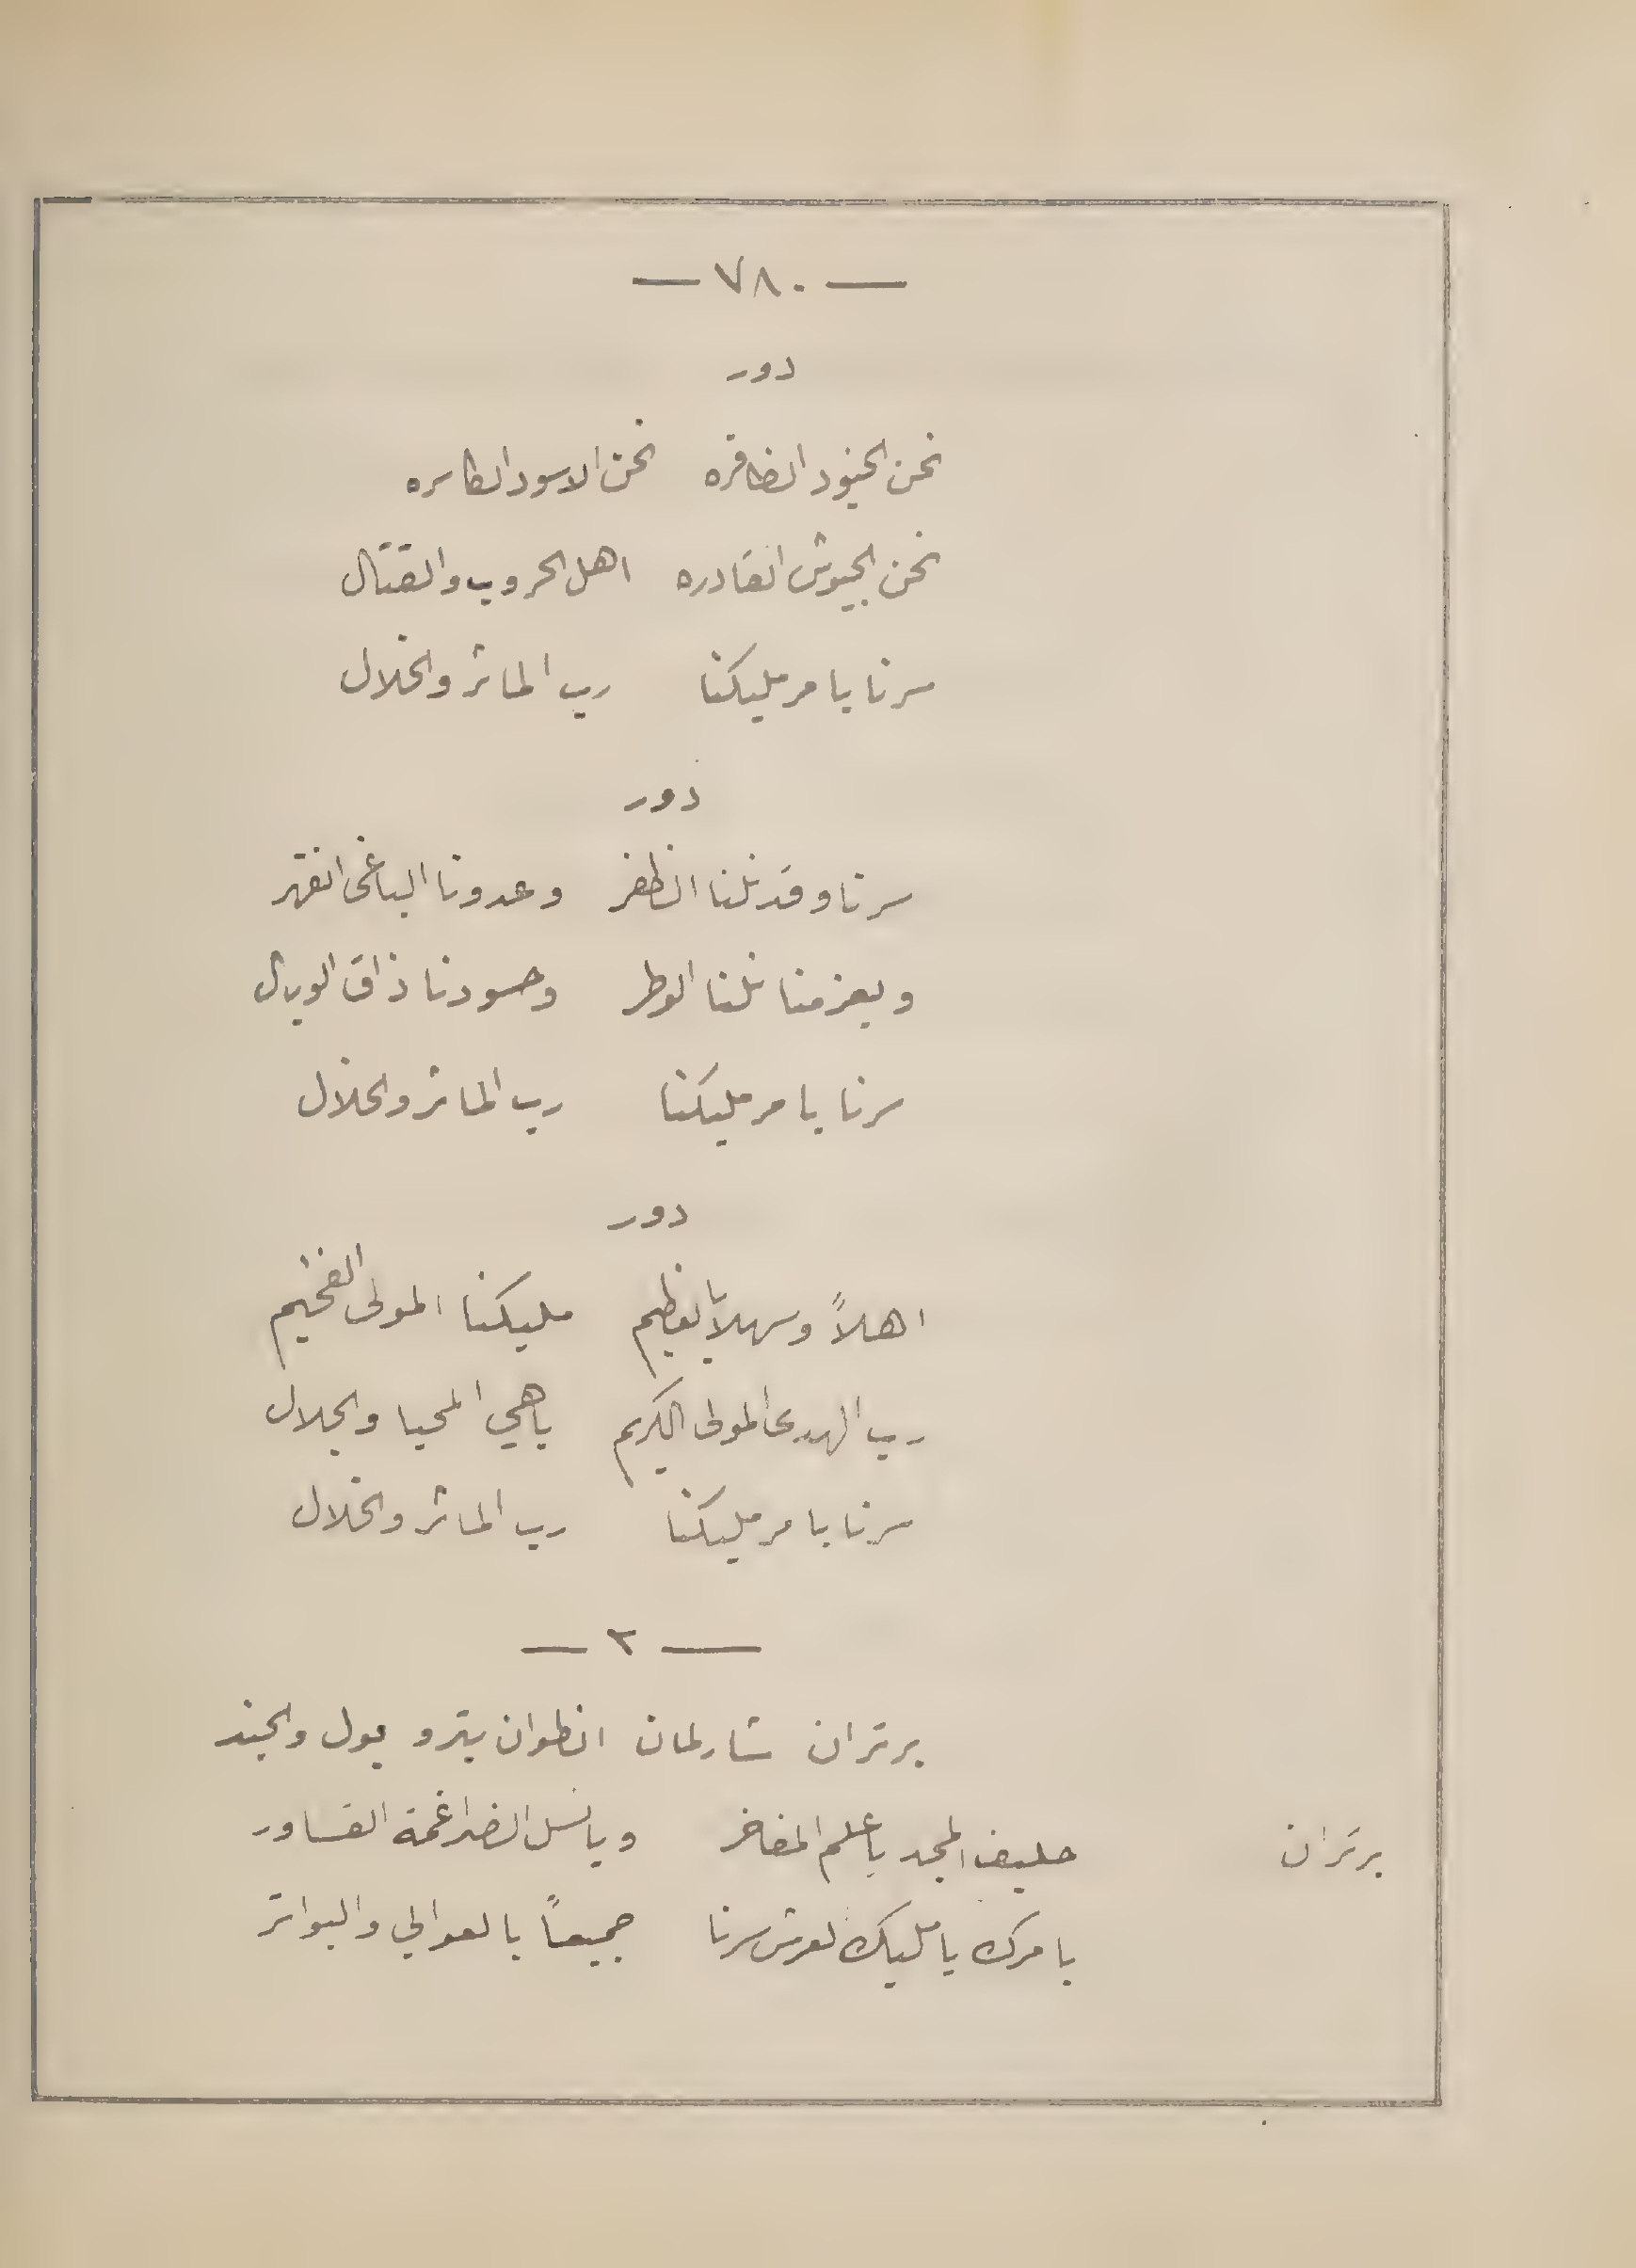 — ٧٨٠ —
دور
نحن الجنود الظافره نحن الاسود الكاسره
نحن الجيوش القادره اهل الحروب والقتال
سرنا بامر مليكنا رب الماثر والخلال
دور
سرنا وقد نلنا الظفر وعدونا الباغى انقهر
وبعزمنا نلنا الوطر وحسودنا ذاق الوبال
سرنا بامر مليكنا رب الماثر والخلال
دور
اهلاً وسهلاً بالعظيم مليكنا المولى الفخيم
رب الهدى المولى الكريم باهي المحيا والجلال
سرنا بامر مليكنا رب الماثر والخلال
— ٢ —
برتران شارلمان انطوان بترو بول والجند
برتران حليف المجد يا علم المفاخر ويا نسل الضراغمة القساور
بامرك يا مليك لعرش سرنا جميعاً بالعوالي والبواتر